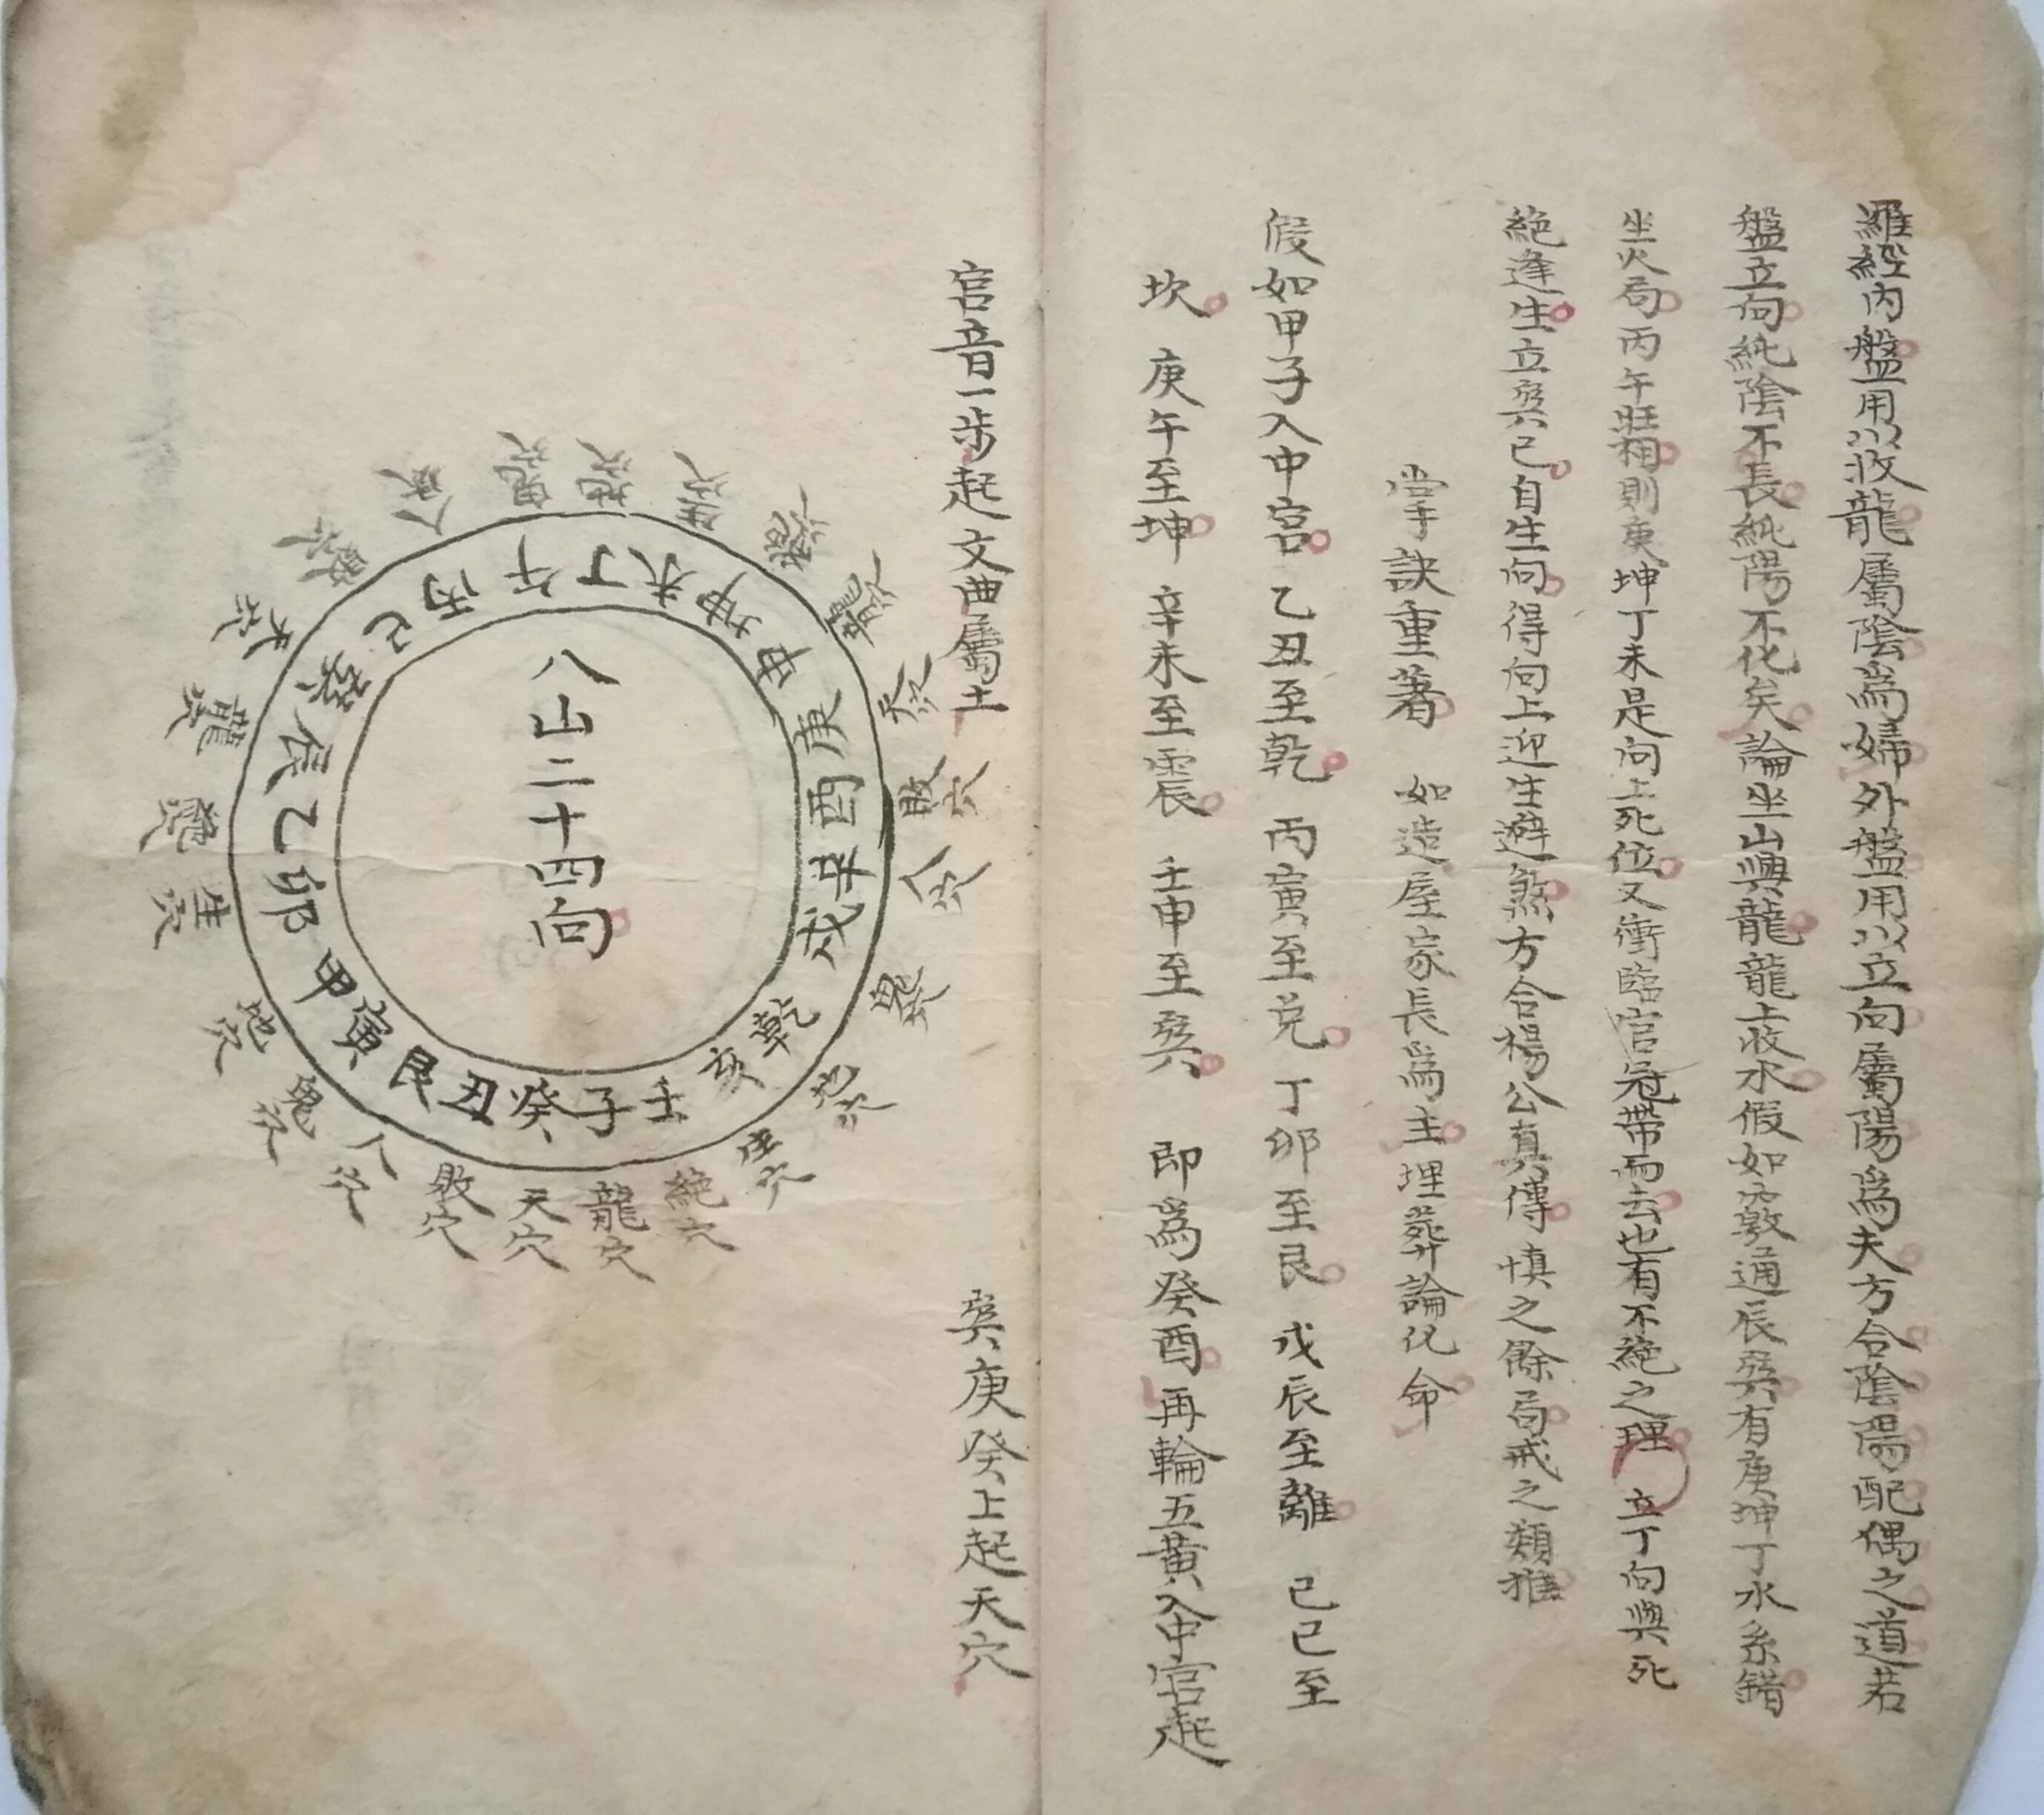 羅經內盤用以收龍屬陰為婦外盤用以立向屬陽為夫方合陰陽配偶之道若
盤立向純陰不長純陽不化矣論坐山與龍龍上收水假如敦通辰巽有庚坤丁水糸錯
坐火局丙午旺相則庚坤丁未是向上死位又衝臨官冠帶而去也有不絕之理 立丁向與死
絕逢生立巽巳自生向得向上迎生避煞方合楊公真傳慎之餘局戒之類推
掌訣重著 如造屋家長為主埋葬論化命
假如甲子入中宮 乙丑至乾 丙寅至兌 丁卯至艮 戊辰至離 己巳至
坎 庚午至坤 辛未至震 壬申至巽 即為癸酉再輪五黃入中宮起
宮音一步起文曲屬土 巽庚癸上起天穴
八山二十四向
午丁未坤申庚酉辛戌乾亥壬子癸丑艮寅甲卯乙辰巽巳丙
鬼穴
地穴
生穴
絕穴
龍穴
天穴
敗穴
人穴
鬼穴
地穴
生穴
絕穴
龍穴
天穴
敗穴
人穴
鬼穴
地穴
生穴
絕穴
龍穴
天穴
敗穴
人穴